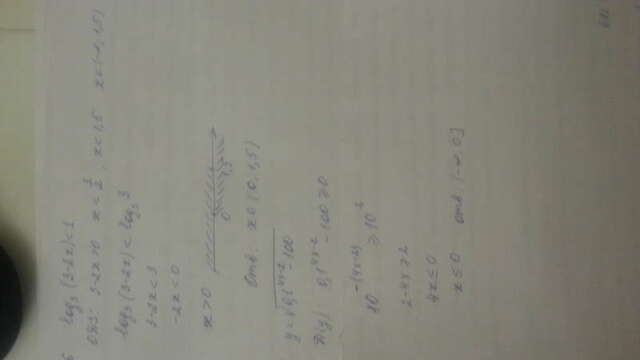 log₃(3-2x)<1
ОДЗ: 3-2x>0 x<3/2, x<1,5 x∈(-∞, 1,5)
log₃(3-2x)<log₃3
3-2x<3
-2x<0
x>0
0 1,5
Отв. x∈(0, 1,5)
y=√0,1^(4x-2)-100
Д(y) 0,1^(4x-2)-100≥0
10^-(4x-2)≥10²
2-4x≥2
4x≤0
x≤0 Отв. (-∞, 0]